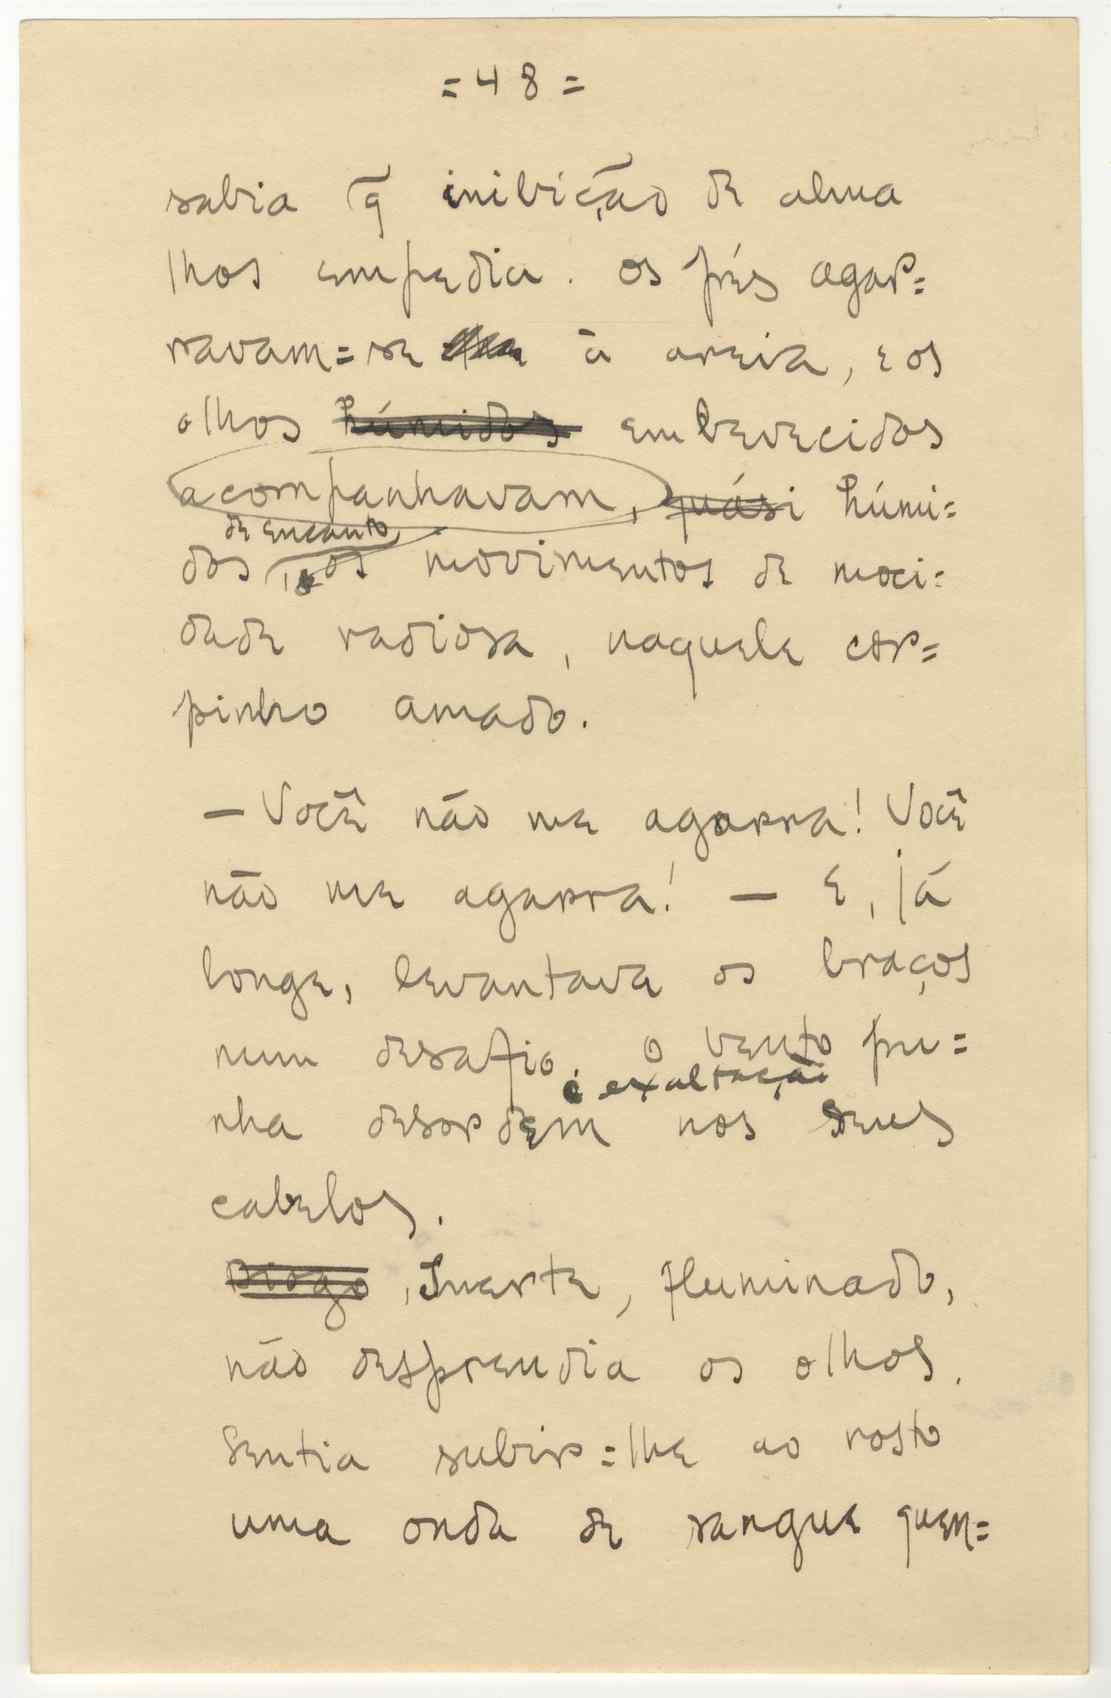 = 48 =
sabia q̃ inibição de alma
lhos empedia. Os pés agar=
ravam=se à areia, e os
olhos húmidos embevecidos
acompanhavam, quási húmi=
de encanto
dos os movimentos de moci=
dade radiosa, naquele cor=
pinho amado.
— Você não me agarra! Você
não me agarra! — E, já
longe, levantava os braços
num desafio. O vento pu=
e exaltação
nha desordem nos seus
cabelos.
Diogo, Inerte, iluminado,
não desprendia os olhos.
Sentia subir=lhe ao rosto
uma onda de sangue quen=